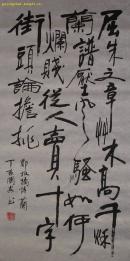 屈宋文章艸木高千秋
蘭譜壓風騷如何
爛賤從人賣十字
街頭論擔挑
鄭板橋詩蘭
丁亥